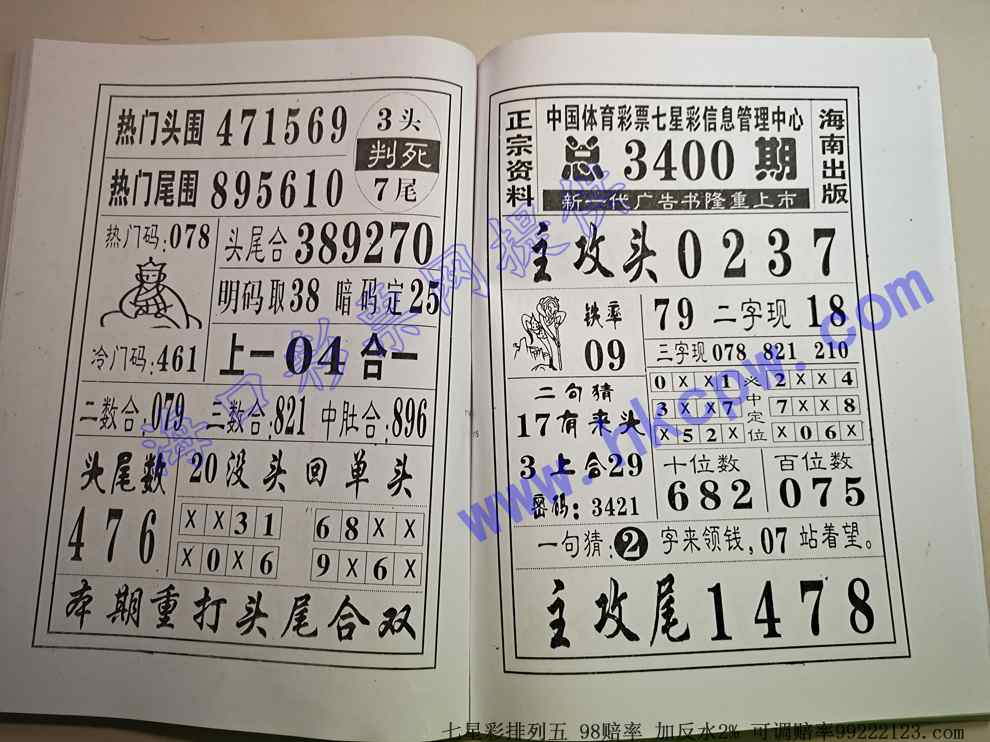 热门头围 471569
3头
判死
7尾
热门尾围 895610
热门码:078
头尾合 389270
明码取38 暗码定25
冷门码:461
上一04合一
二数合:079 三数合:821 中肚合:896
头尾数
476
20没头回单头
X X 3 1
6 8 X X
X 0 X 6
9 X 6 X
本期重打头尾合双
正宗资料
中国体育彩票七星彩信息管理中心
总 3400 期
新一代广告书隆重上市
海南出版
主攻头0237
铁率
09
79 二字现 18
三字现 078 821 210
二句猜
17有来头
3上合29
密码:3421
0 X X 1
3 X X 7
X 5 2 X
必中定位
2 X X 4
7 X X 8
X 0 6 X
十位数
682
百位数
075
一句猜:2字来领钱,07站着望。
主攻尾1478
海口彩票网提供
www.hkcpw.com
七星彩排列五 98赔率 加反水2% 可调赔率99222123.com